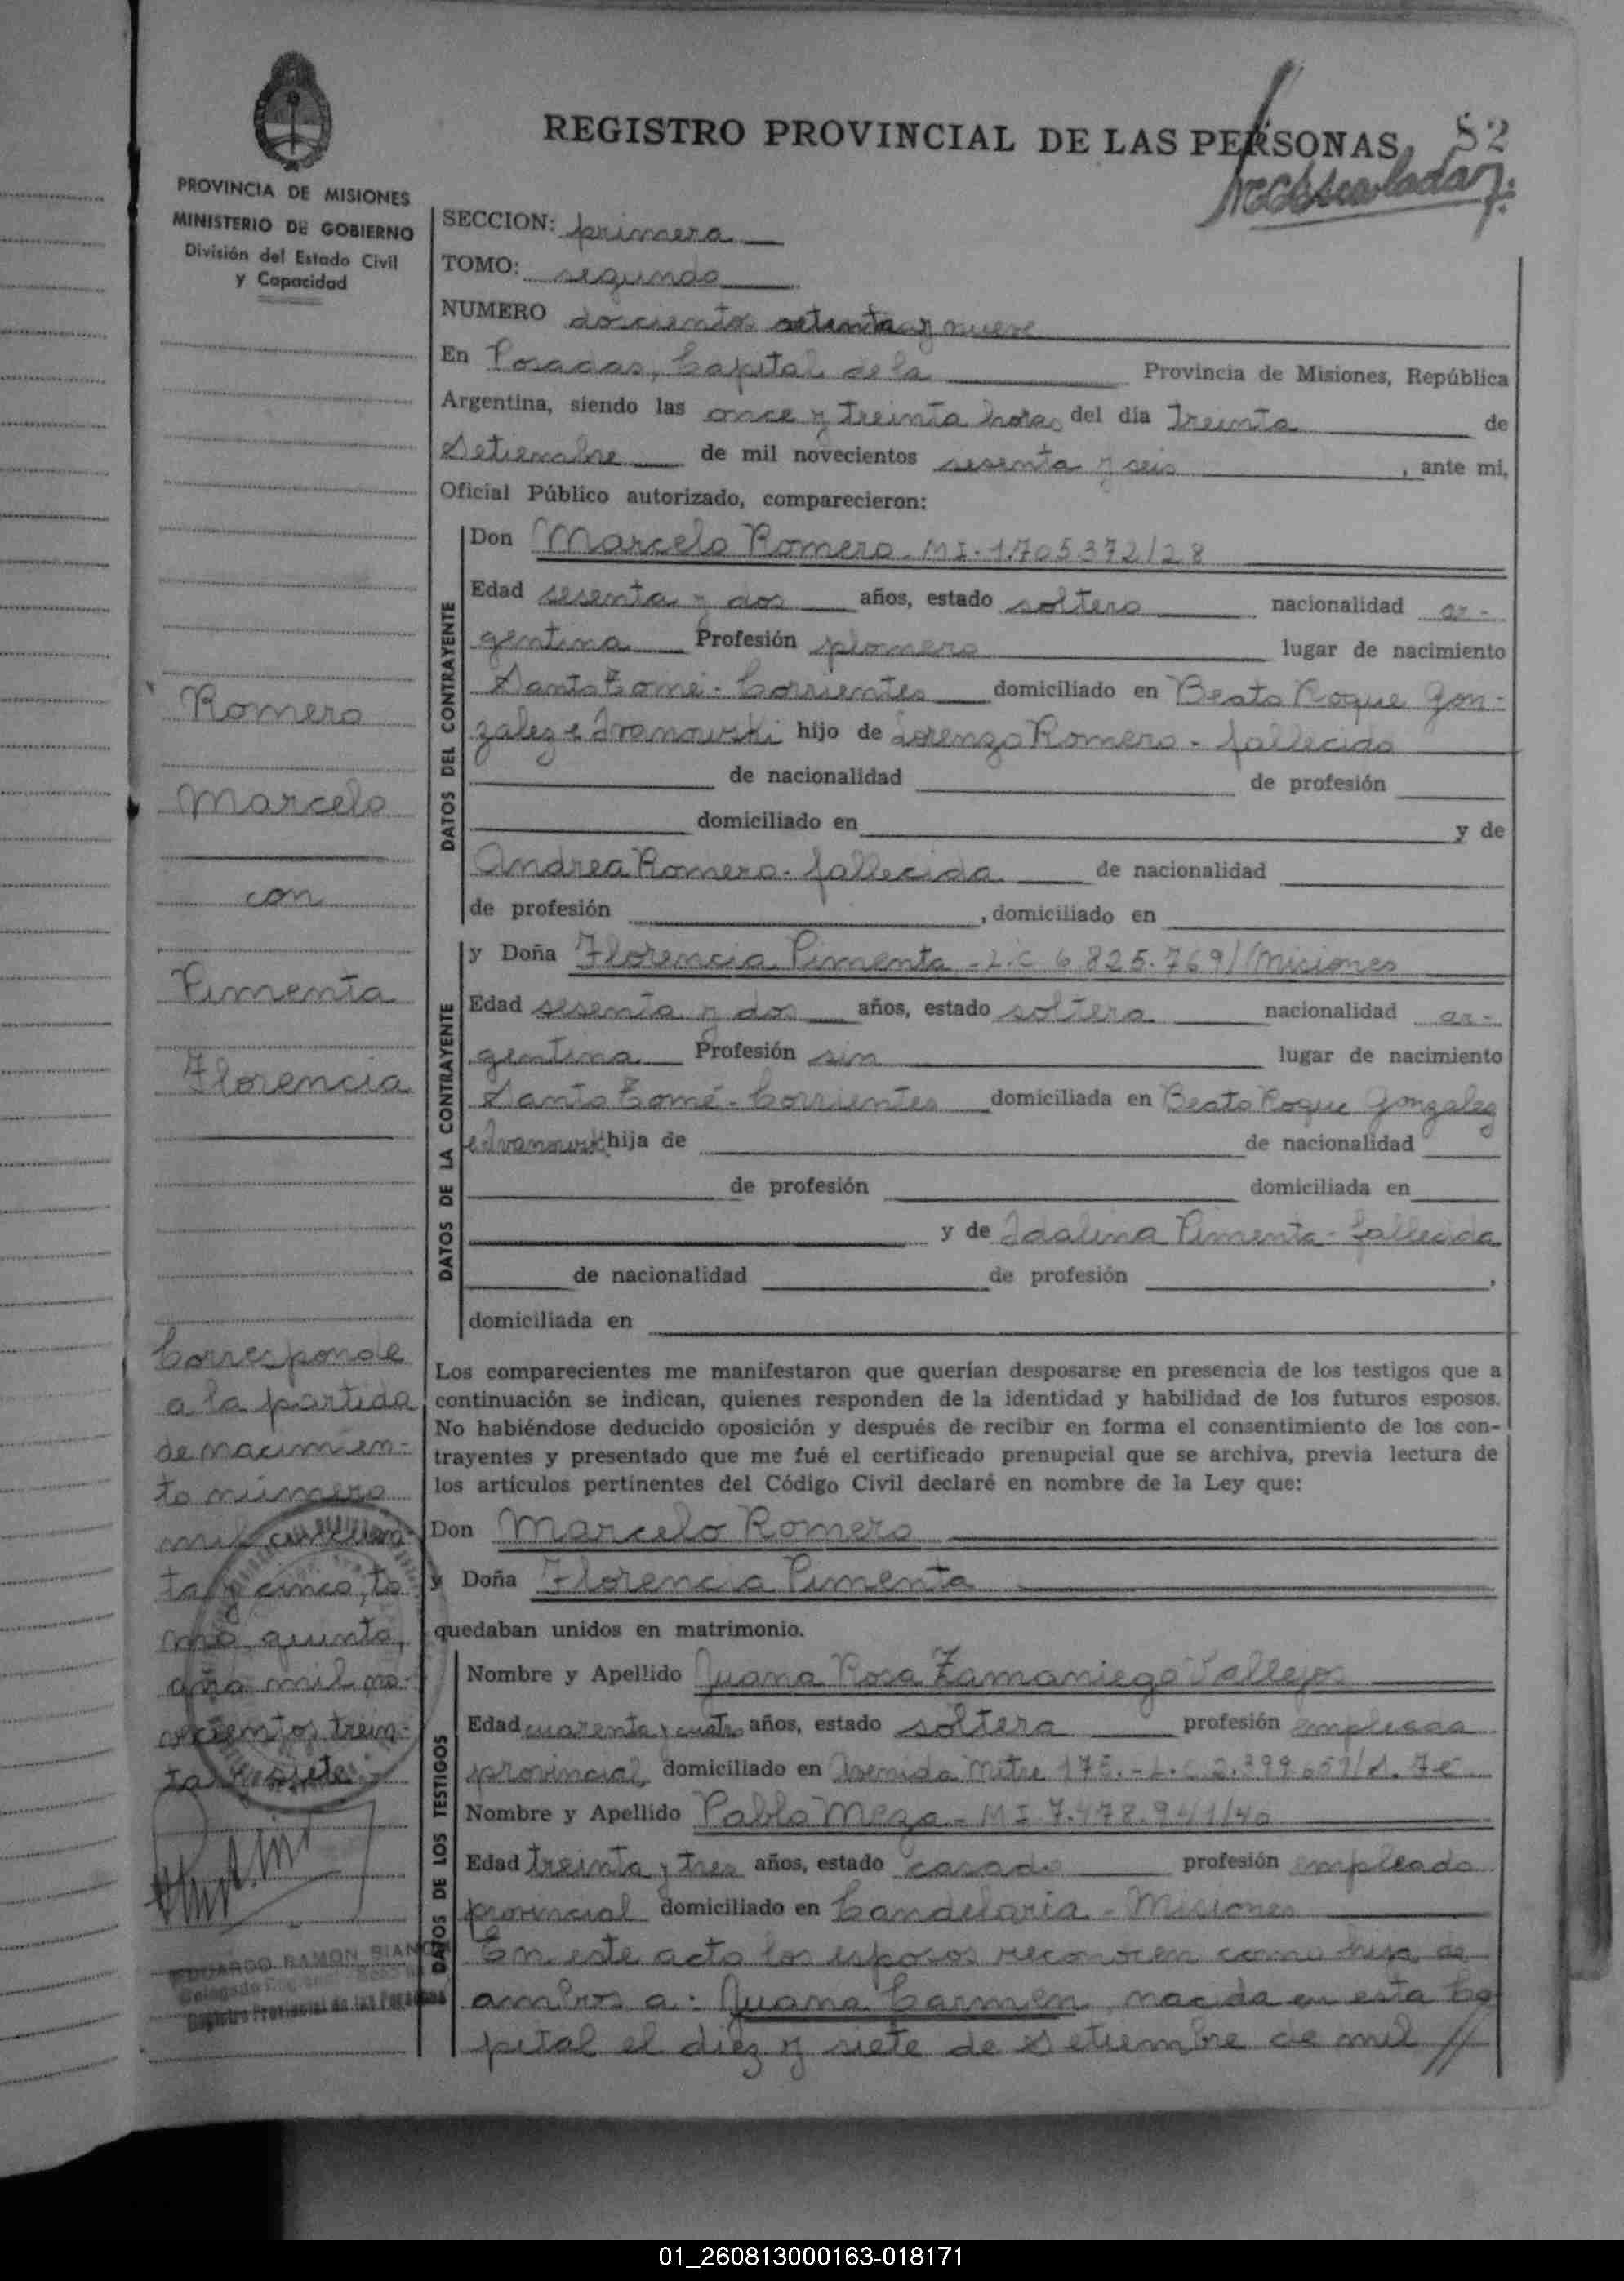 REGISTRO PROVINCIAL DE LAS PERSONAS 82
PROVINCIA DE MISIONES
MINISTERIO DE GOBIERNO
División del Estado Civil
y Capacidad
SECCION: primera
TOMO: segundo
NUMERO doscientos setenta y nueve
En Posadas, Capital de la Provincia de Misiones, República
Argentina, siendo las once y treinta horas del día treinta de
Setiembre de mil novecientos sesenta y seis, ante mi,
Oficial Público autorizado, comparecieron:
DATOS DEL CONTRAYENTE
Don Marcelo Romero - MI - 1.705.372/28
Edad sesenta y dos años, estado soltero nacionalidad ar-
gentina Profesión plomero lugar de nacimiento
Santo Tomé - Corrientes domiciliado en Beato Roque Gon-
zalez e Ivanowski hijo de Lorenzo Romero - fallecido
de nacionalidad de profesión
domiciliado en y de
Andrea Romero - fallecida de nacionalidad
de profesión , domiciliado en
DATOS DE LA CONTRAYENTE
y Doña Florencia Pimenta - L.C 6.825.769//Misiones
Edad sesenta y dos años, estado soltera nacionalidad ar-
gentina Profesión sin lugar de nacimiento
Santo Tomé - Corrientes domiciliada en Beato Roque Gonzalez
e Ivanowski hija de de nacionalidad
de profesión domiciliada en
y de Idalina Pimenta - fallecida
de nacionalidad de profesión ,
domiciliada en
Los comparecientes me manifestaron que querían desposarse en presencia de los testigos que a
continuación se indican, quienes responden de la identidad y habilidad de los futuros esposos.
No habiéndose deducido oposición y después de recibir en forma el consentimiento de los con-
trayentes y presentado que me fué el certificado prenupcial que se archiva, previa lectura de
los artículos pertinentes del Código Civil declaré en nombre de la Ley que:
Don Marcelo Romero
y Doña Florencia Pimenta
quedaban unidos en matrimonio.
DATOS DE LOS TESTIGOS
Nombre y Apellido Juana Rosa Zamaniego Vallejos
Edad cuarenta y cuatro años, estado soltera profesión empleada
provincial domiciliado en Avenida Mitre 175.- L.C 2.399.657
Nombre y Apellido Pablo Meza - MI 7.478.941/40
Edad treinta y tres años, estado casado profesión empleado
provincial domiciliado en Candelaria - Misiones
En este acto los esposos reconocen como hija de
ambos a: Juana Carmen, nacida en esta Ca
pital el diez y siete de Setiembre de mil //
Romero
Marcelo
con
Pimenta
Florencia
Corresponde
a la partida
de nacimien-
to número
mil
ta y cinco, to
mo quinto,
año mil no-
vecientos trein-
ta y siete
EDUARDO RAMON
Registro Provincial de las Personas
01_260813000163-018171